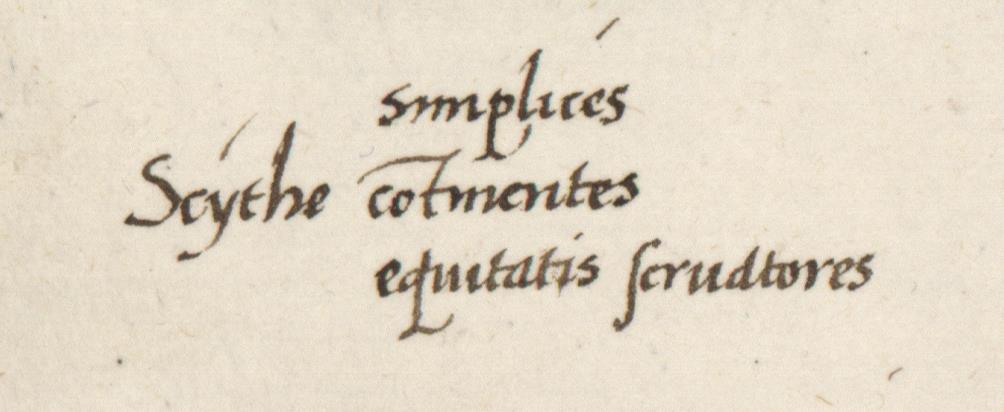 simplices
Scythe cōtinentes
equitatis ſcruatores